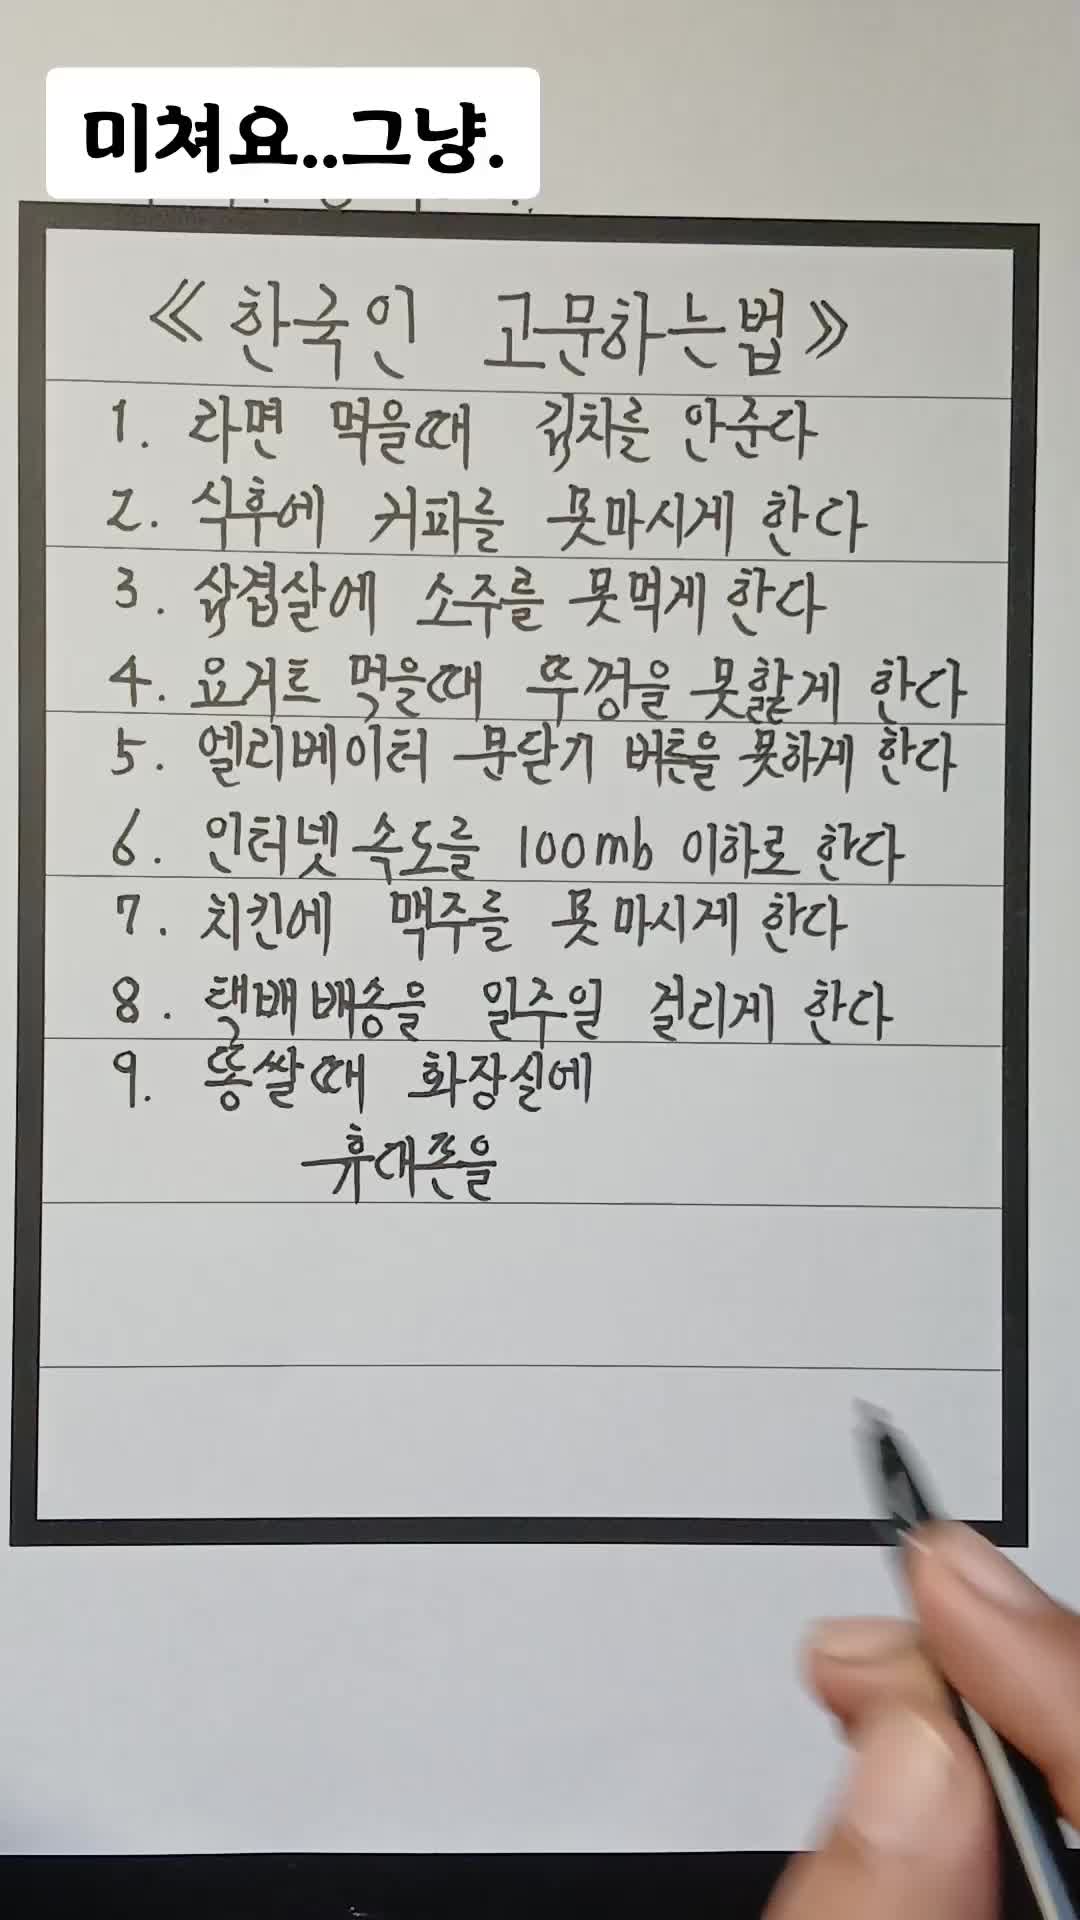 미쳐요..그냥.
《한국인 고문하는법》
1. 라면 먹을때 김치를 안준다
2. 식후에 커피를 못마시게 한다
3. 삼겹살에 소주를 못먹게 한다
4. 요거트 먹을때 뚜껑을 못핥게 한다
5. 엘리베이터 문닫기 버튼을 못하게 한다
6. 인터넷 속도를 100mb 이하로 한다
7. 치킨에 맥주를 못마시게 한다
8. 택배배송을 일주일 걸리게 한다
9. 똥쌀때 화장실에
휴대폰을